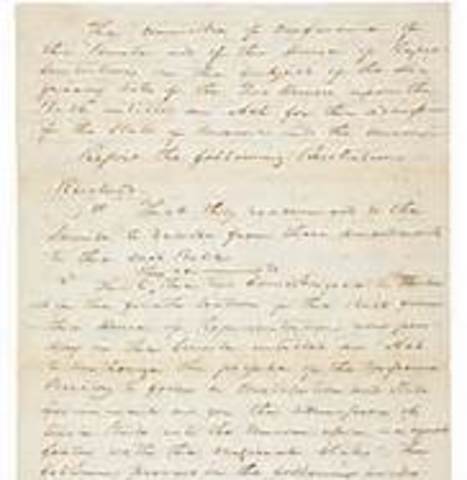 The Committee of Conference of
the Senate and of the House of Repre-
sentatives, on the subject of the dis-
agreeing votes of the Two Houses upon the
Bill entitled an Act for the admission
of the State of Maine into the Union
Report the following Resolution
Resolved.
1st That they recommend to the
Senate to recede from their amendments
to the said Bill
the two Houses agree to strike
out of the fourth section of the Bill from
the House of Representatives now pen
ding in the Senate entitled an Act
to authorize the people of the Missouri
Territory to form a Constitution and State
Government and for the admission of
such State into the Union upon an equal
footing with the original States, the
following proviso in the following words